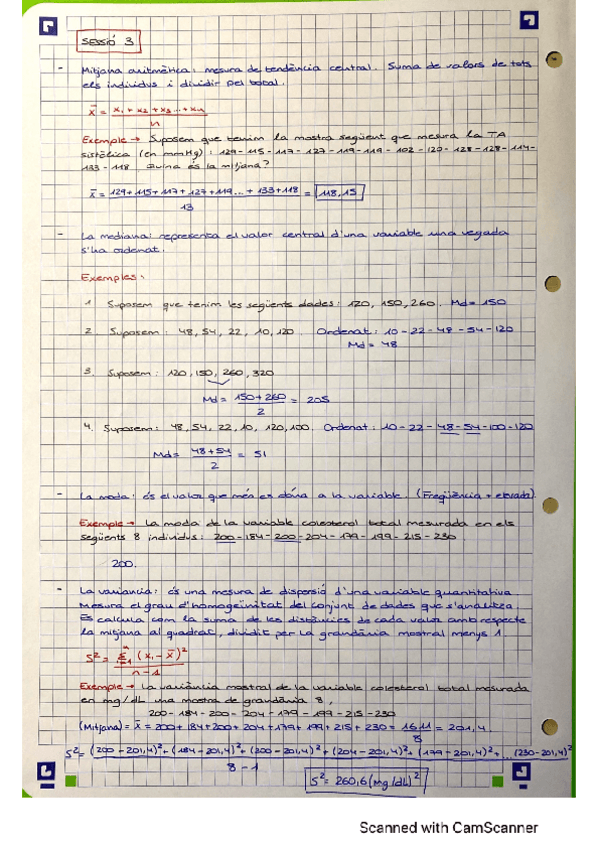 SESSIÓ 3
- Mitjana aritmètica: mesura de tendència central. Suma de valors de tots
els individus i dividir pel total.
x̄ = x₁ + x₂ + x₃ ... + xₙ
n
Exemple → Suposem que tenim la mostra següent que mesura la TA
sistèlica (en mmHg): 129 - 115 - 117 - 127 - 119 - 119 - 102 - 120 - 128 - 128 - 114 -
133 - 118 és la mitjana?
x̄ = 129 + 115 + 117 + 127 + 119 ... + 133 + 118 = 118,15
13
- La mediana: representa el valor central d'una variable una vegada
s'ha ordenat.
Exemples:
1 Suposem que tenim les següents dades: 120, 150, 260. Md = 150
2. Suposem: 48, 54, 22, 10, 120. Ordenat: 10 - 22 - 48 - 54 - 120
Md = 48
3. Suposem: 120, 150, 260, 320
Md = 150 + 260 = 205
2
4. Suposem: 48, 54, 22, 10, 120, 100. Ordenat: 10 - 22 - 48 - 54 - 100 - 120
Md = 48 + 54 = 51
2
- La moda: és el valor que més es dóna a la variable. (Freqüència + elevada).
Exemple → La moda de la variable colesterol total mesurada en els
següents 8 individus: 200 - 184 - 200 - 204 - 179 - 199 - 215 - 230
200.
- La variància: és una mesura de dispersió d'una variable quantitativa.
Mesura el grau d'homogeïnitat del conjunt de dades que s'analitza.
Es calcula com la suma de les distàncies de cada valor amb respecte
la mitjana al quadrat, dividit per la grandària mostral menys 1
S² = Σⁿᵢ₌₁ (xᵢ - x̄)²
n - 1
Exemple → La variància mostral de la variable colesterol total mesurada
en mg/dL una mostra de grandària 8,
200 - 184 - 200 - 204 - 179 - 199 - 215 - 230
(Mitjana) = x̄ = 200 + 184 + 200 + 204 + 179 + 199 + 215 + 230 = 1611 = 201,4.
8
S² = (200 - 201,4)² + (184 - 201,4)² + (200 - 201,4)² + (204 - 201,4)² + (199 - 201,4)² + ... (230 - 201,4)²
8 - 1
S² = 260,6 (mg/dL)²
Scanned with CamScanner